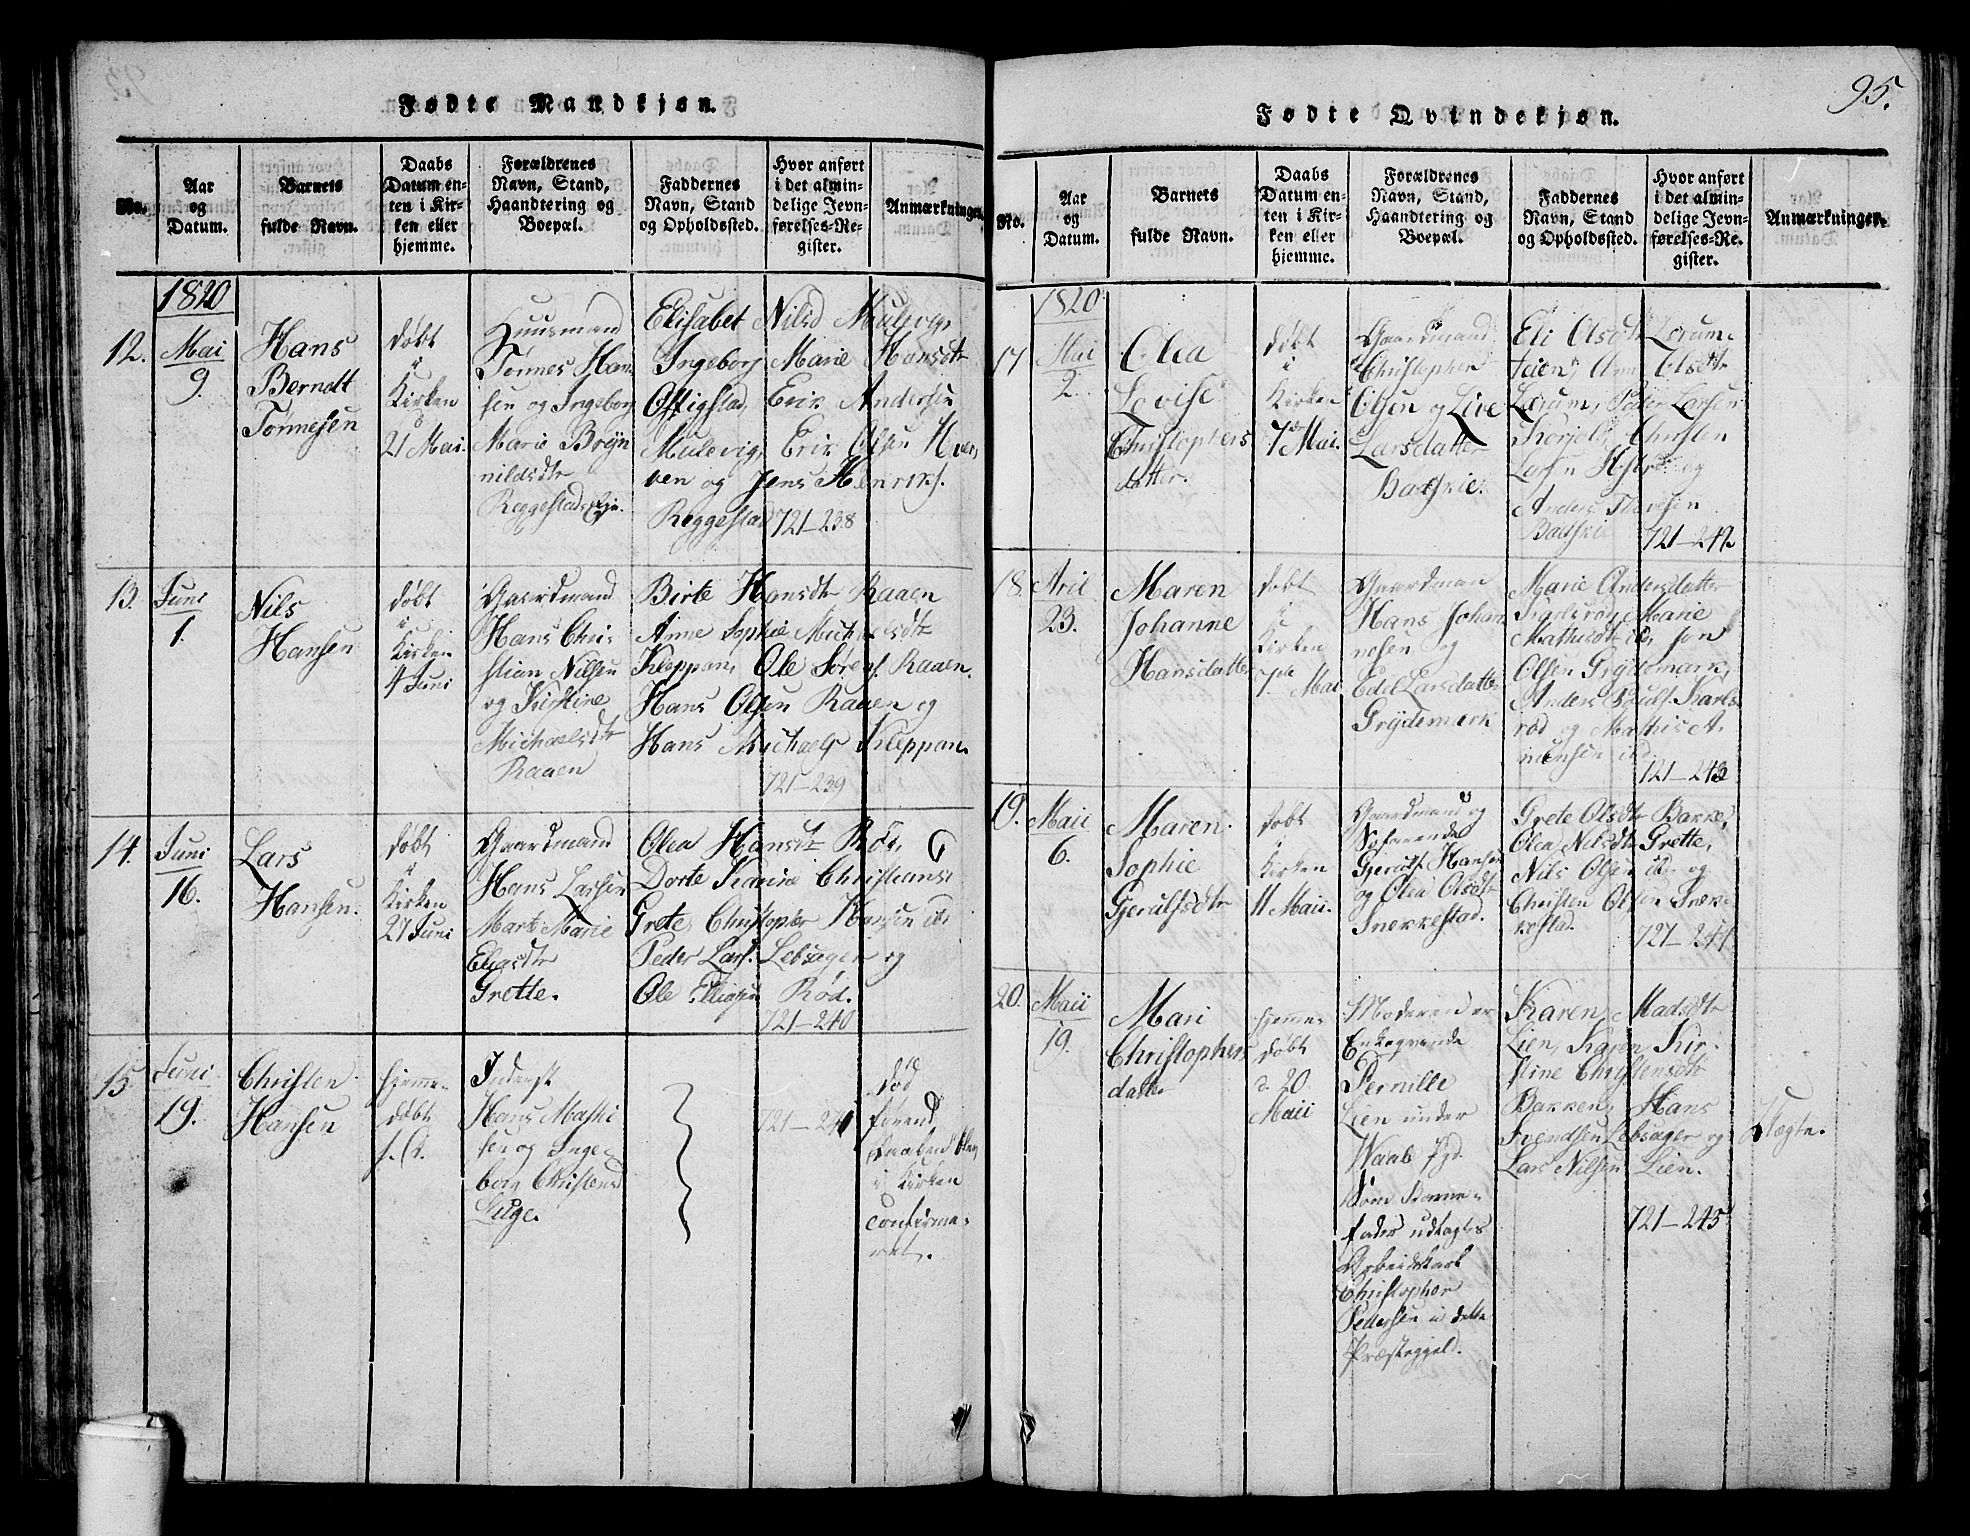 95.
Fødte Mandkjøn.
No.
Aar
og
Datum.
Barnets
fulde Navn.
Daabs
Datum en-
ten i Kir-
ken eller
hjemme.
Forældrenes
Navn, Stand,
Haandtering og
Boepæl.
Faddernes
Navn, Stand
og Opholdssted.
Hvor anført
i det almin-
delige Jevn-
førelses-Re-
gister.
Anmærkninger.
1820
12.
Mai
9.
Hans
Berndt
Tønnesen
døbt
i
Kirken
21 Mai.
Huusmand
Tønnes Han
sen og Ingeborg
Marie Bryn
nildsdtr
Reggestad
Elisabet Nilsd Mulevig,
Ingeborg Marie Hansdtr
Østigstad, Erik Andersen
Mulevig, Erik Olsen
ven og Jens Henriks.
Reggestad
721-238
13.
Juni
1.
Nils
Hansen
døbt
i
Kirken
4 Juni
Gaardmand
Hans Chri
stian Nilsen
og Kirstine
Michaelsdtr
Raaen
Birte Hansdtr Raaen
Anne Sophie Michaelsdtr
Kleppan, Ole Sørens. Raaen.
Hans Olsen Raaen og
Hans Michaels Kleppan.
721-239
14.
Juni
16.
Lars
Hansen.
døbt
i
Kirken
27 Juni
Gaardmand
Hans Larsen
Mart Marie
Eliasdtr
Grette.
Olea Hansdtr Rød,
Dorte Karine Christians
Grete, Christopher Hansen
Peder Lars. Lebsager og
Ole Eliasen Rød.
721-240
15
Juni
19.
Christen
Hansen
hjemme-
døbt
s. d.
Inderst
Hans Mathi
sen og Inge-
borg Christensd
Huge.
721-241
død
førend
Daaben blev
i Kirken
confirme-
ret.
Fødte Qvindekjøn.
No.
Aar
og
Datum.
Barnets
fulde Navn.
Daabs
Datum en-
ten i Kir-
ken eller
hjemme.
Forældrenes
Navn, Stand,
Haandtering og
Boepæl.
Faddernes
Navn, Stand
og Opholdssted.
Hvor anført
i det almin-
delige Jevn-
førelses-Re-
gister.
Anmærkninger.
1820
17
Mai
2.
Olea
Lovise
Christophers
datter.
døbt
i
Kirken
7 Mai.
Gaardmand
Christopher
Olsen og Live
Larsdatter
Baaskie.
Eli Olsdtr Lerum
Olsdtr
Lerum, Peder Larsen
Christen
Larsen og
Anders
Baaskie
721-242
18.
Aril
23.
Maren
Johanne
Hansdatter
døbt
i
Kirken
7de Mai
Gaardman
Hans Johan
nesen og
Edel Larsdatter
Grydemark
Marie Andersdatter
Marie
Olsen Grydemark,
Anders Karls
rød og Mathis A
721-243
19.
Maii
6.
Maren
Sophie
Gjerulfsdtr
døbt
i
Kirken
11 Maii.
Gaardmand og
Søfarende
Gjerulf Hansen
og Olea Olsdtr
Snekkestad.
Grete Olsdtr Bakke,
Olea Nilsdtr Grette,
Nils Olsen ib. og
Christen Olsen Snek-
kestad.
721-244
20.
Maii
19.
Mari
Christophers
datter
hjemme-
døbt
d. 20
Maii
Moderen er
Enkeqvinde
Pernille
Lien under
Waale Pgd.
Som Barne-
fader udlagtes
Arbeidskarl
Christopher
Pedersen i dette
Præstegjeld.
Karen Madsdtr
Lien, Karen Kir-
stine Christensdtr
Bakken, Hans
Svendsen Lebsager og
Lars Nilsen Lien.
721-245
Uægte.